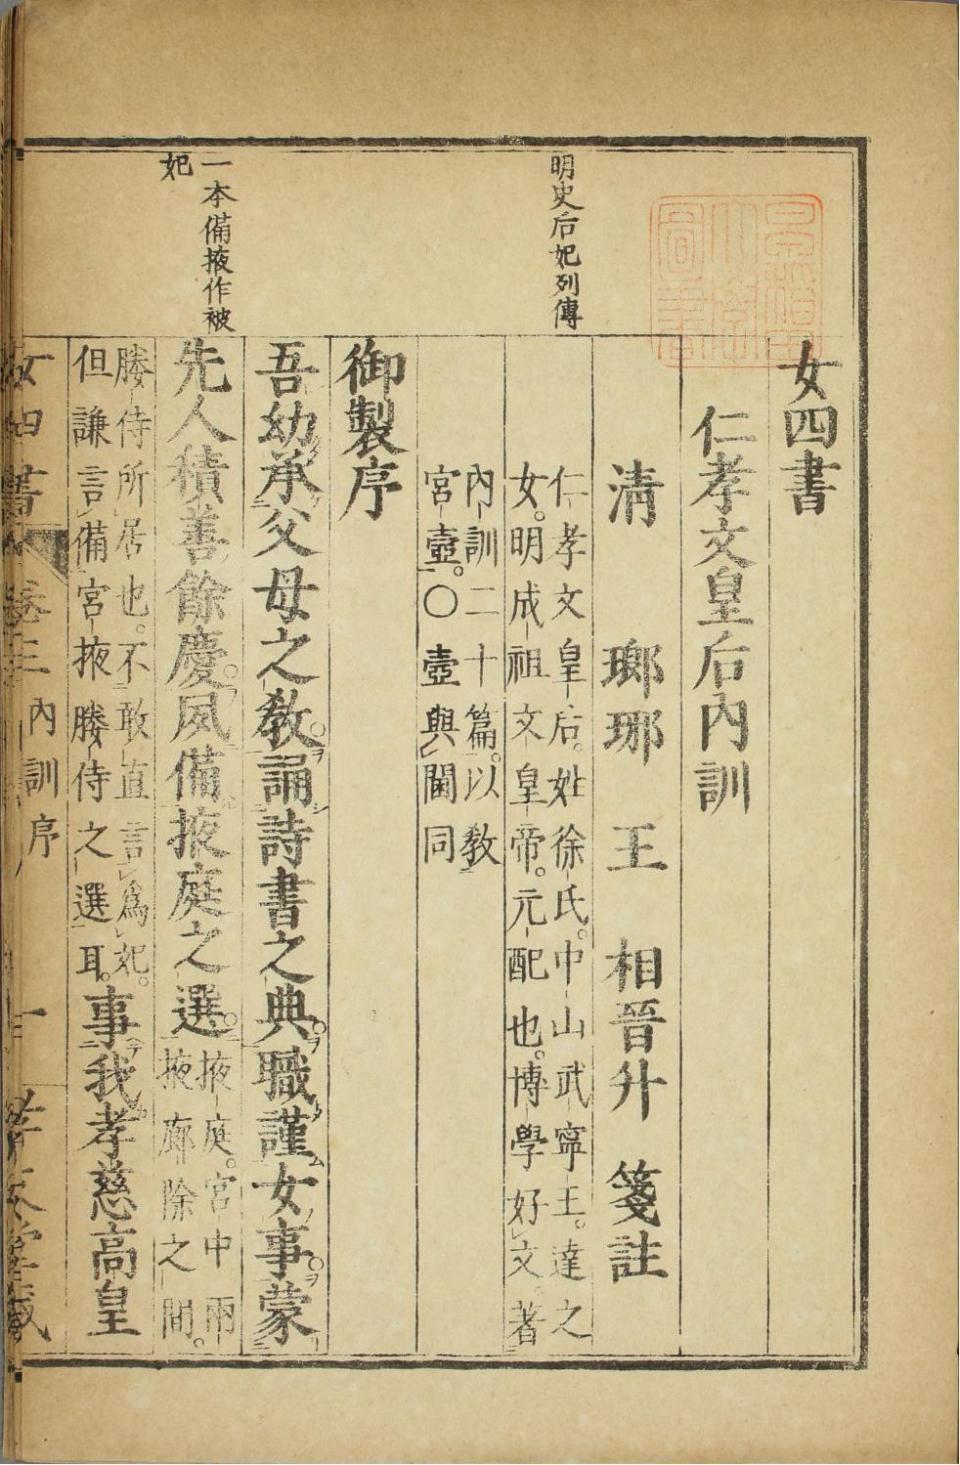 明史后妃列傳
一本備掖作被
妃
女四書
仁孝文皇后內訓
清 瑯琊 王 相晉升 箋註
仁孝文皇后。姓徐氏。中山武寧王。達之
女。明成祖文皇帝。元配也。博學好文。著
內訓二十篇。以教
宮壼。〇壼與閫同
御製序
吾幼承父母之教。誦詩書之典。職謹女事。蒙
先人積善餘慶。夙備掖庭之選。
掖庭。宮中兩
掖廊除之間。
媵侍所居也。不敢直言為妃。
但謙言備宮掖媵侍之選耳。
事我孝慈高皇
女四書 卷三 內訓序 一